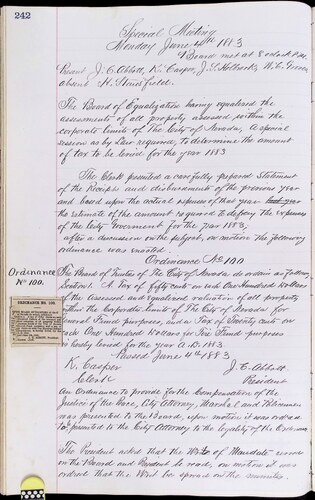 242
Special Meeting
Monday June 4th 1883
Board met at 8 oclock P.M.
Present J. C. Abbott, K. Casper, J. S. Holbrook, W. C. Groves
absent H. Stansfield.
The Board of Equalization having equalized the
assessments of all property assessed within the
corporate limits of The City of Nevada, A special
session as by Law required, to determine the amount
of tax to be levied for the year 1883
The Clerk presented a carefully prepared Statement
of the Receipts and disbursments of the previous year
and based upon the actual expenses of that year
the estimate of the amount required to defray the expenses
of the City Government for the year 1883,
after a discussion on the subject, on motion the following
ordinance was enacted.
Ordinance No 100
Ordinance
No 100.
ORDINANCE NO. 100.
The Board of Trustees of The City of Nevada do ordain as follows
Section 1. A Tax of fifty cents on each One Hundred Dollars
of the assessed and equalized valuation of all property
within the Corporate Limits of The City of Nevada for
General Fund purposes, and a Tax of Twenty cents on
each One Hundred Dollars for Fire Fund purposes
is hereby levied for the year A.D. 1883
Passed June 4th 1883
K. Casper
J. C. Abbott
Clerk
President
An Ordinance to provide for the Compensation of the
Justice of the Peace, City Attorney, Marshal and Policemen
was presented to the Board, upon motion it was ordered
presented to the City Attorney to the legality of the Ordinance
The President asked that the Writ of Mandate served
on the Board and President be read, on motion it was
ordered that the Writ be spread on the minutes.